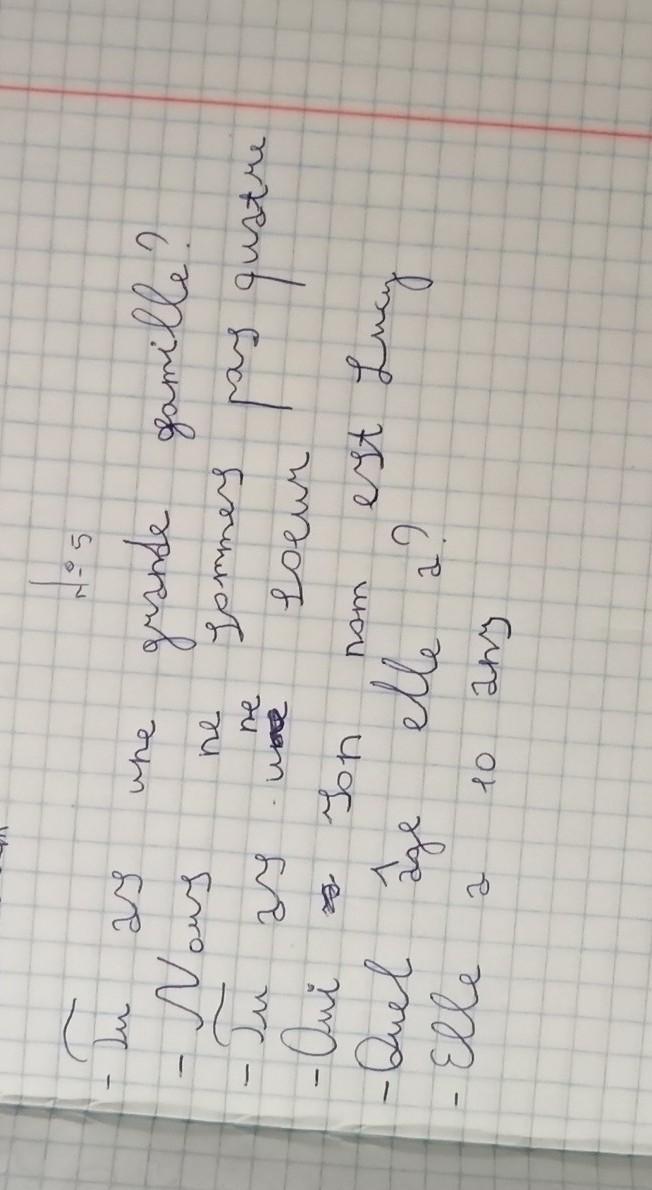 № 5
- Tu as une grande famille?
- Nous ne sommes pas quatre
- Tu as ne soeur
- Oui son nom est Lucy
- Quel âge elle a?
- Elle a 10 ans